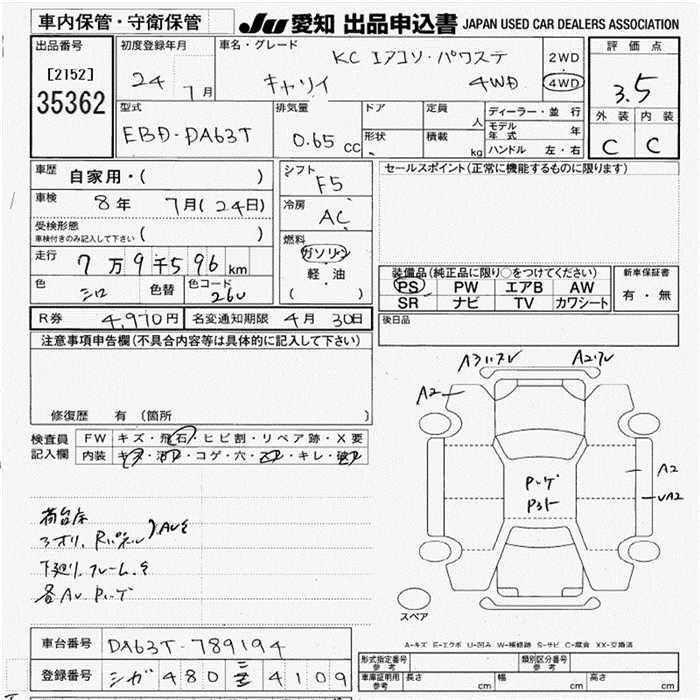 車内保管・守衛保管
JU 愛知 出品申込書 JAPAN USED CAR DEALERS ASSOCIATION
出品番号
[2152]
35362
初度登録年月
24 7月
車名・グレード
KC エアコン・パワステ
キャリイ 4WD
2WD
4WD
評価点
3.5
外装 内装
C C
型式
EBD-DA63T
排気量
0.65 CC
ドア
形状
定員
人
積載
kg
ディーラー・並行
モデル年式 年
ハンドル 左・右
車歴
自家用・( )
車検
8年 7月(24日)
受検形態
車検付きのみ記入して下さい ( )
走行
7万9千596km
色
シロ
色替
色コード
26U
シフト
F5
冷房
AC
燃料
ガソリン
軽・油
( )
セールスポイント(正常に機能するものに限ります)
装備品(純正品に限り○をつけてください)
PS PW エアB AW
SR ナビ TV カワシート
新車保証書
有・無
R券 4,970円 名変通知期限 4月30日
後日品
注意事項申告欄(不具合内容等は具体的に記入して下さい)
修復歴 有 (箇所 )
検査員記入欄
FW キズ・飛石・ヒビ割・リペア跡・X要
内装 キズ・汚レ・コゲ・穴・スレ・キレ・破レ
荷台床
下廻り
A2
A2
スペア
A-キズ E-エクボ U-凹み W-補修跡 S-サビ C-腐食 XX-交換済
車台番号 DA63T-789194
登録番号 480 4109
形式指定番号
参考
類別区分番号
参考
車庫証明用
参考
長さ cm 幅 cm 高さ cm